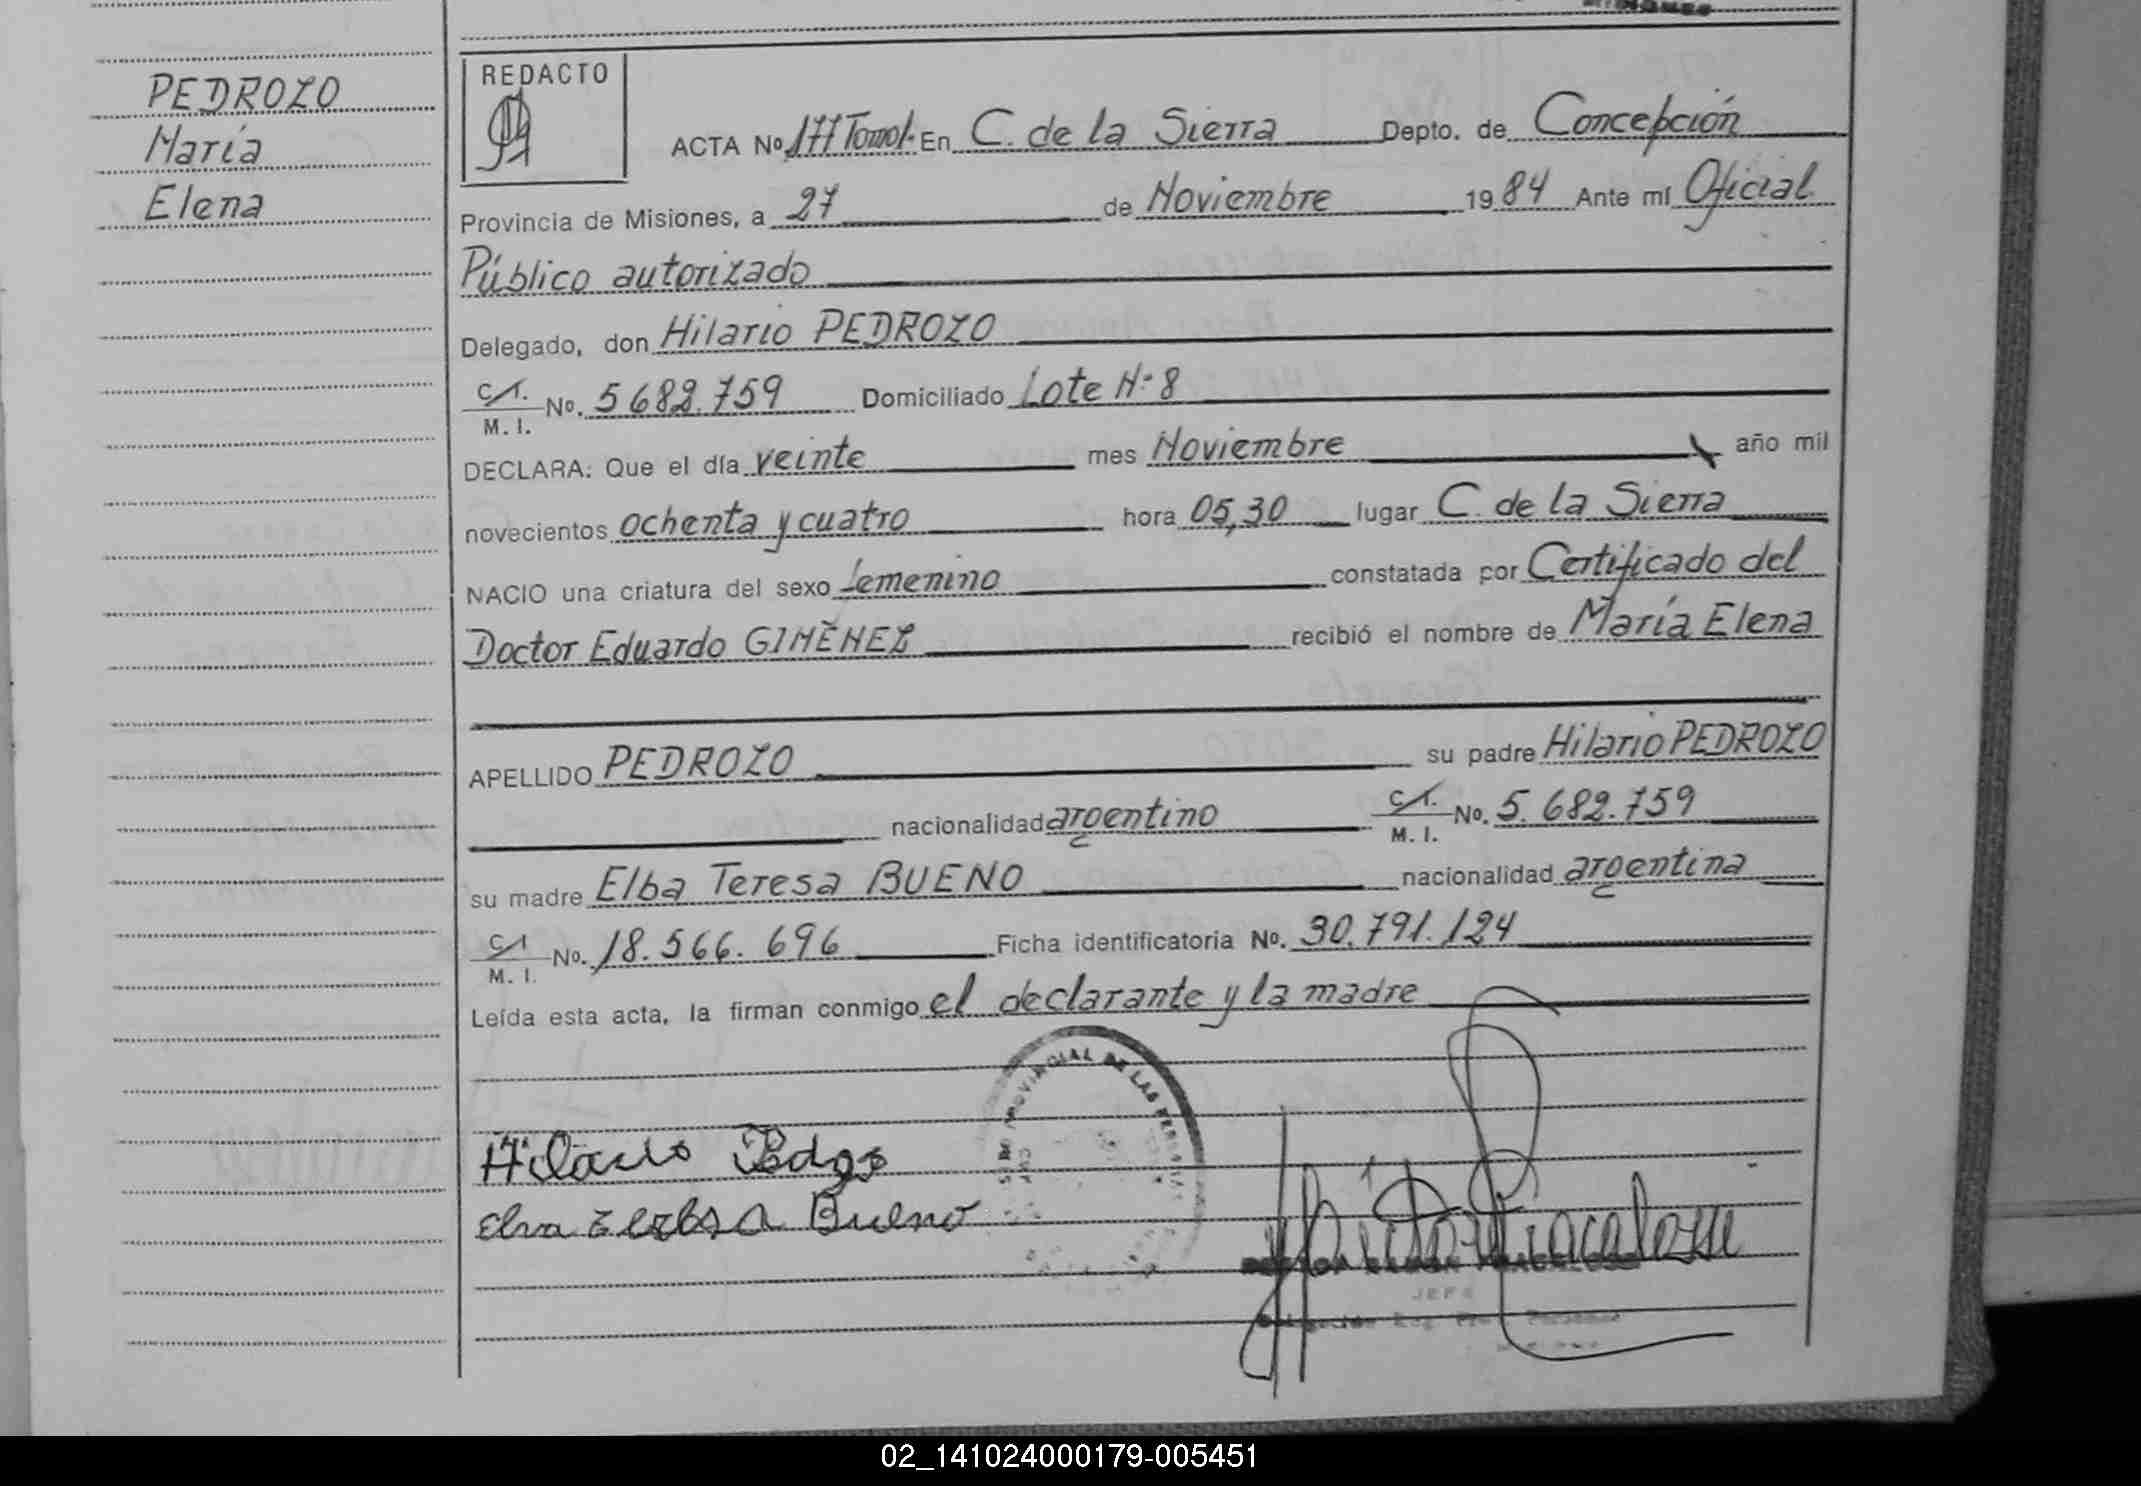 PEDROZO
María
Elena
REDACTO
ACTA No 177 Tomo I. En C. de la Sierra Depto. de Concepción
Provincia de Misiones, a 27 de Noviembre 1984 Ante mí Oficial
Público autorizado
Delegado, don Hilario PEDROZO
C/I. M. I. No. 5682.759 Domiciliado Lote Nº 8
DECLARA: Que el día veinte mes Noviembre año mil
novecientos ochenta y cuatro hora 05,30 lugar C. de la Sierra
NACIO una criatura del sexo femenino constatada por Certificado del
Doctor Eduardo GIMÉNEZ recibió el nombre de María Elena
APELLIDO PEDROZO su padre Hilario PEDROZO
nacionalidad argentino C/I. M. I. No. 5.682.759
su madre Elba Teresa BUENO nacionalidad argentina
C/I M. I. No. 18.566.696 Ficha identificatoria No. 30.791.124
Leída esta acta, la firman conmigo el declarante y la madre
PROVINCIAL DE LAS PERSONAS
Hilario
Bueno
JEFE
02_141024000179-005451